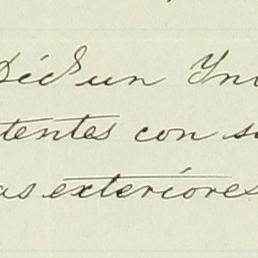 un Yn
tentes con s
as exteriores